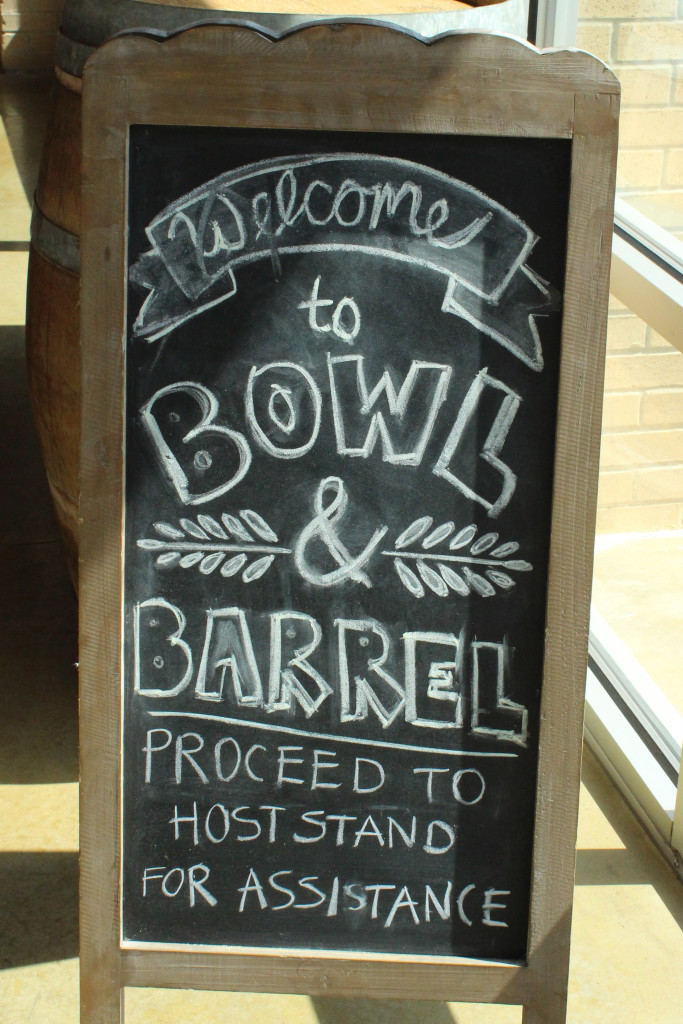 Welcome
to
BOWL
&
BARREL
PROCEED TO
HOST STAND
FOR ASSISTANCE